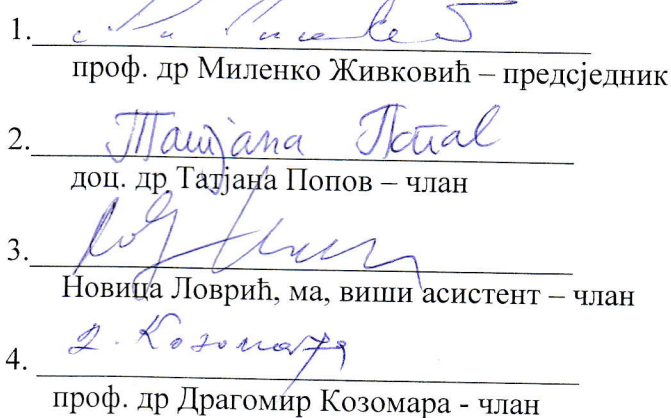 1.
проф. др Миленко Живковић – предсједник
2. Татјана Попов
доц. др Татјана Попов – члан
3.
Новица Ловрић, ма, виши асистент – члан
4. Д. Козомара
проф. др Драгомир Козомара - члан